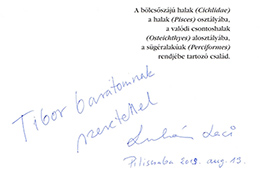 A bölcsőszájú halak (Cichlidae)
a halak (Pisces) osztályába,
a valódi csontoshalak
(Osteichthyes) alosztályába,
a sügéralakúak (Perciformes)
rendjébe tartozó család.
Tibor barátomnak
szeretettel
Laci
Piliscsaba 2019. aug. 19.